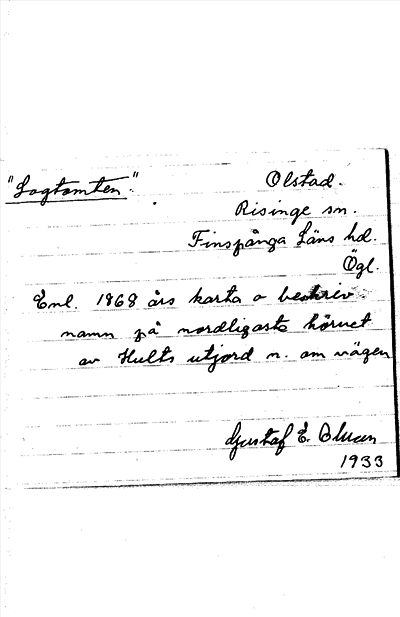 "Logtomten".
Olstad.
Risinge sn.
Finspånga Läns hd.
Ögl.
Enl. 1868 års karta o beskriv
namn på nordligaste hörnet
av Hults utjord n. om vägen
Gustaf E. Olsson
1933